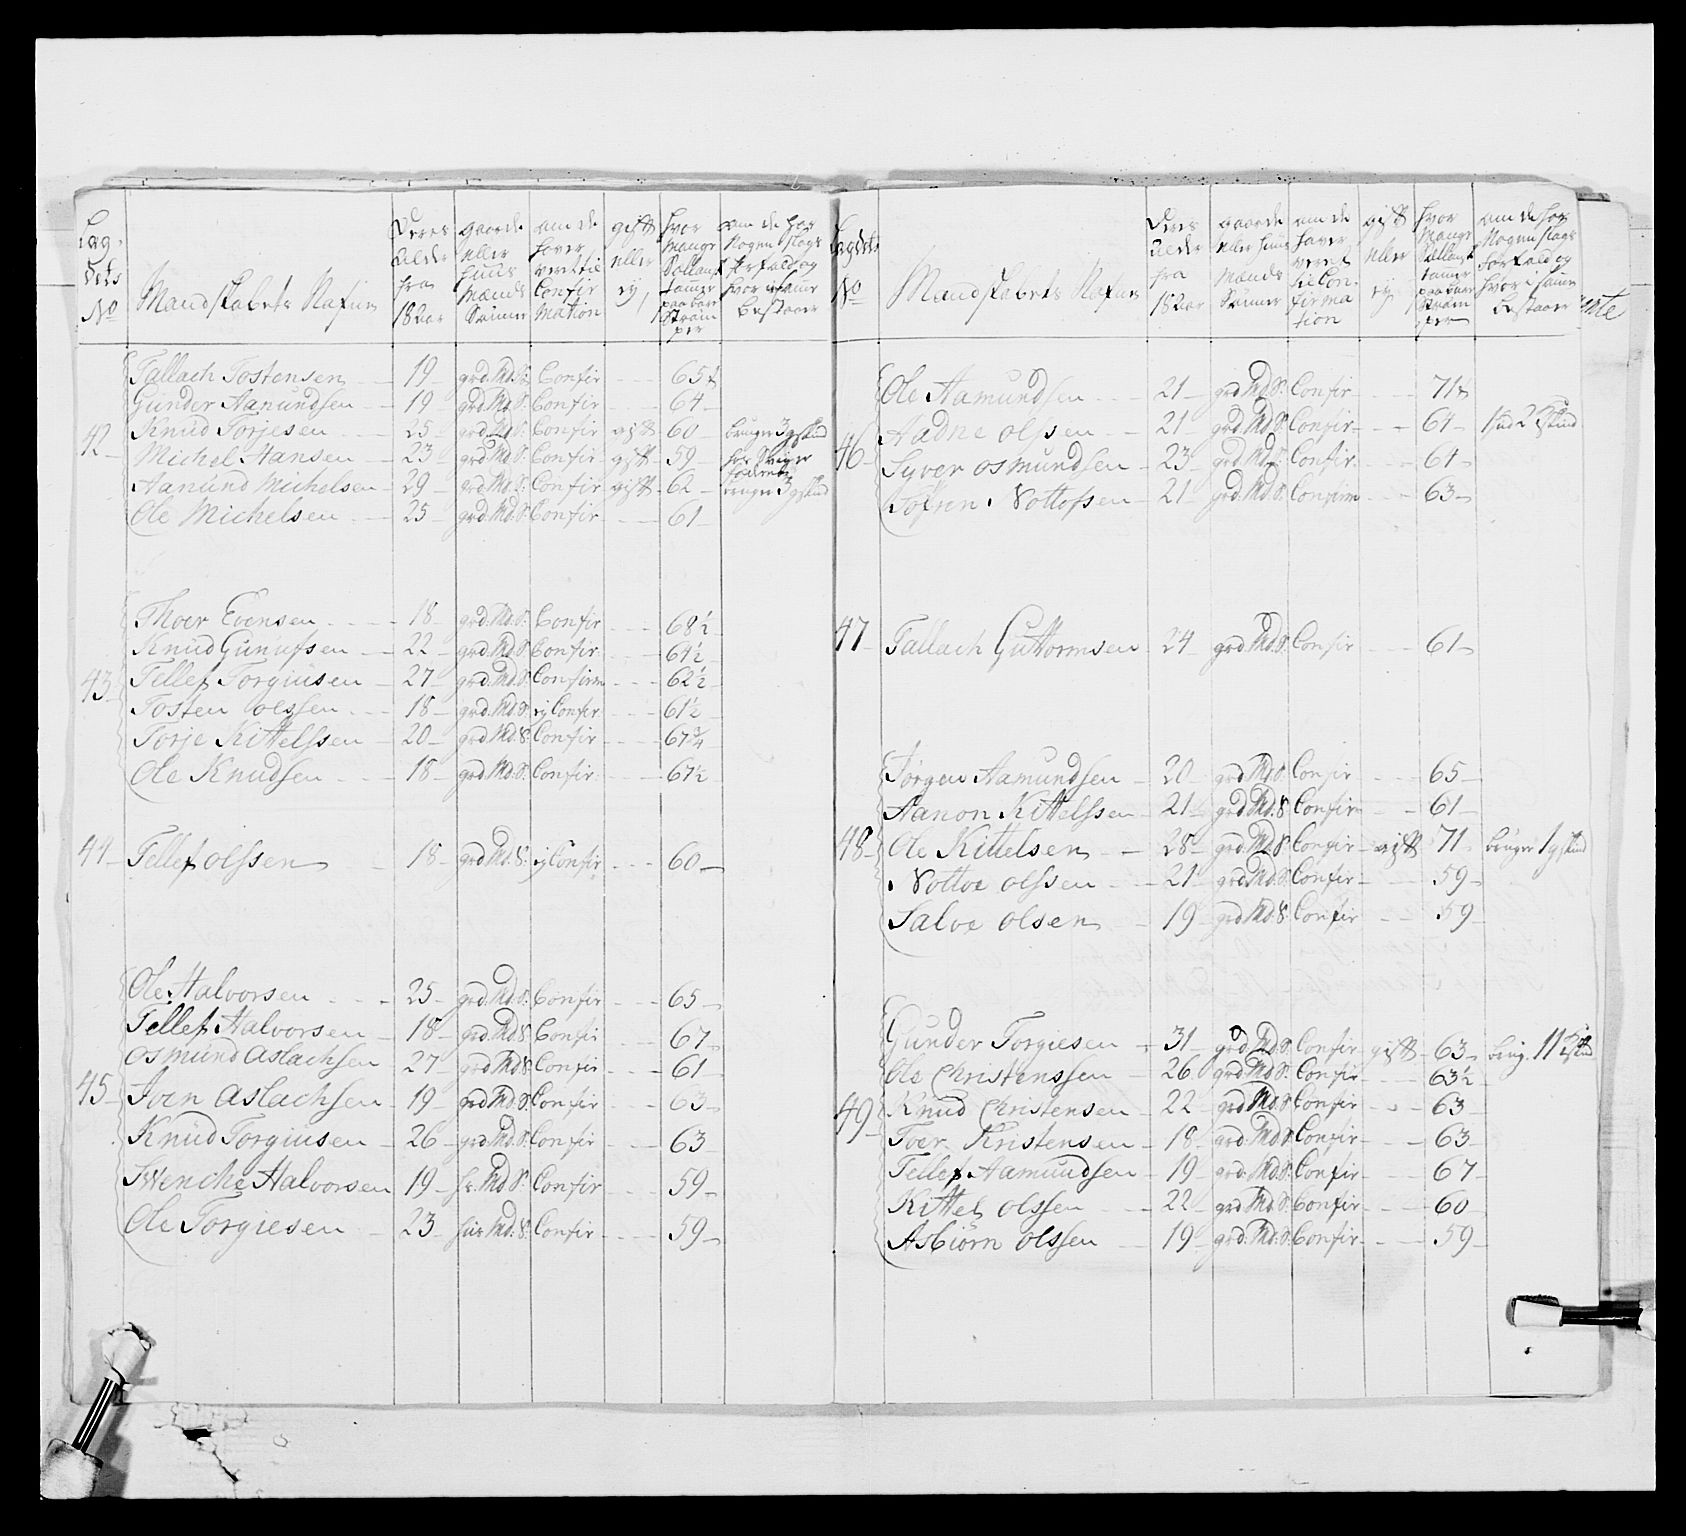 Læg-
dets
No
Mandskabets Nafne
Deres
Alder
fra
18 aar
gaards
eller
huus
Mænds
Sønner
om de
haver
vert til
Confir
mation
gift
eller
ej
hvor
Mange
Sællands
tommer
paa bare
Ström
per
om de har
Nogen slags
forfald og
hvor i samme
bestaaer
Tallach Tostensen 19 grd. Md. S. Confir 65½
Gunder Aanundsen 19 grd. Md. S. Confir 64
42 Knud Torjesen 25 grd. Md. S. Confir gift 60 bruger 3
Michel Hansen 23 grd. Md. S. Confir gift 59
Aanund Michelsen 29 grd. Md. S. Confir gift 62 bruger 3
Ole Michelsen 25 grd. Md. S. Confir 61
Thoer Evensen 18 grd. Md. S. Confir 68½
Knud Gunufsen 22 grd. Md. S. Confir 64½
43 Tellef Torgiusen 27 grd. Md. S. Confirm 62½
Tosten olssen 18 grd. Md. S. ej Confir 61½
Torje Kittelssen 20 grd. Md. S. Confir 67¾
Ole Knudsen 18 grd. Md. S. Confir 67½
44 Tellef olssen 18 grd. Md. S. ej Confir 60
Ole Halvorsen 25 grd. Md. S. Confir 65
Tellef Halvorsen 18 grd. Md. S. Confir 67
Osmund Aslachsen 27 grd. Md. S. Confir 61
45 Joen Aslachsen 19 grd. Md. S. Confir 63
Knud Torgiusen 26 grd. Md. S. Confir 63
Swenche Halvorsen 19 Md. S. Confir 59
Ole Torgiesen 23 huus Md. S. Confir 59
Lægdets
No
Mandskabets Nafne
Deres
Alder
fra
18 aar
gaards
eller huus
Mænds
Sønner
om de
haver
veret
til Con-
firma
tion
gift
eller
ej
hvor
Mange
Sællands
tommer
paa bare
Ström
per
om de har
Nogen slags
forfald og
hvor i samme
bestaaer
Ole Aamundsen 21 grd. Md. S. Confir 71½
Aadne olssen 21 grd. Md. S. Confir 64
46 Syver osmundsen 23 grd. Md. S. Confir 64
Tofren Nottofsen 21 grd. Md. S. Confirm 63
47 Tallach Guttormsen 24 grd. Md. S. Confir 61
Jørgen Aamundsen 20 grd. Md. S. Confir 65
Aanon Kittelssen 21 grd. Md. S. Confir 61
48 Ole Kittelsen 28 grd. Md. S. Confir gift 71 bruger 1
Nottov olssen 21 grd. Md. S. Confir 59
Salve olsen 19 grd. Md. S. Confir 59
Gunder Torgiesen 31 grd. Md. S. Confir gift 63
Ole Christenssen 26 grd. Md. S. Confir 63½
49 Knud Christensen 22 grd. Md. S. Confir 63
Toer Kristensen 18 grd. Md. S. Confir 63
Tellef Aamundsen 19 grd. Md. S. Confir 67
Kittel olssen 22 grd. Md. S. Confir 60
Asbiørn olssen 19 grd. Md. S. Confir 59